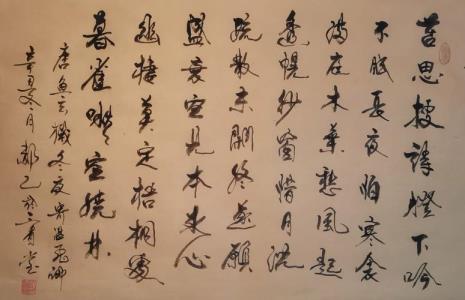 苦思搜詩燈下吟
不眠長夜怕寒衾
滿庭木葉愁風起
透幌紗窗惜月沉
疏散未閑終遂願
盛衰空見本來心
幽棲莫定梧桐處
暮雀啾々空繞林
唐魚玄機冬夜寄溫飛卿
辛丑冬月 三有堂